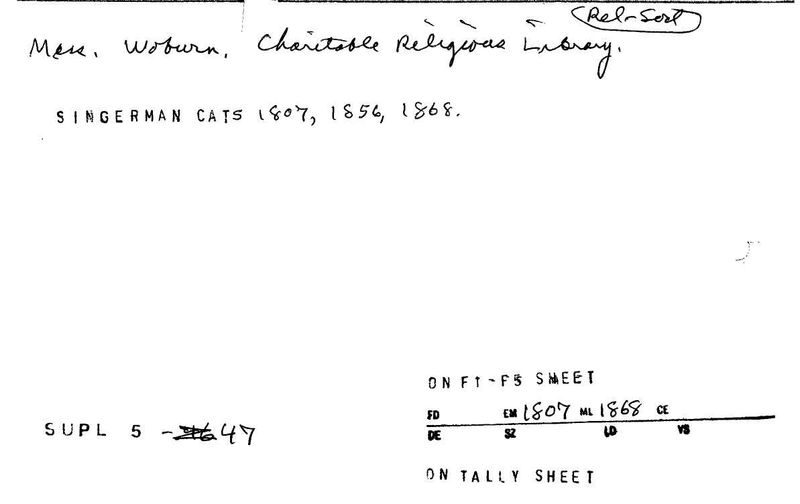 Rel-Sort
Mass. Woburn. Charitable Religious Library.
SINGERMAN CATS 1807, 1856, 1868.
ON F1-F5 SHEET
FD EM 1807 ML 1868 CE
SUPL 5 - 47
DE SZ LD VS
ON TALLY SHEET